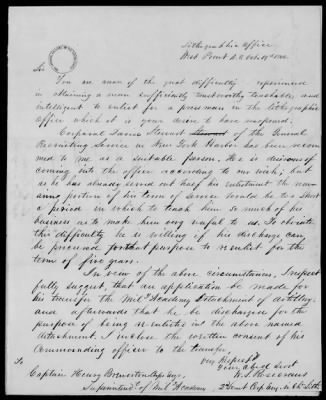 Lithographic Office
West Point N.Y. Oct. 19th
Sir
You are aware of the great difficulty experienced
in obtaining a man sufficiently trustworthy teachable and
intelligent to enlist for a press man in the lithographic
office which it is your desire to have reopened.
Corporal James Stewart of the General
Recruiting Service in New York Harbor has been recom
med to me as a suitable person. He is desirous of
coming into the office according to our wish; but
as he has already served out half his enlistment the rem-
aining portion of his term of service would be too short
a period in which to teach him so much of his
business as to make him very useful to us. To obviate
this difficulty he is willing if his discharge can
be procured for that purpose to reenlist for the
term of five years.
In view of the above circumstances, I respect
fully suggest, that an application be made for
his transfer to the Mily Academy Detachment of Artillery.
and afterwards that he be discharged for the
purpose of being re-enlisted into the above named
detachment. I enclose the written consent of his
Commanding officer to the transfer.
Very Respecty
Your obed Servt
To W.S. Rosecrans
Captain Henry Brewerton Corps Engs. 2d Lieut Corp Eng.
Superintendt of Mil Academy